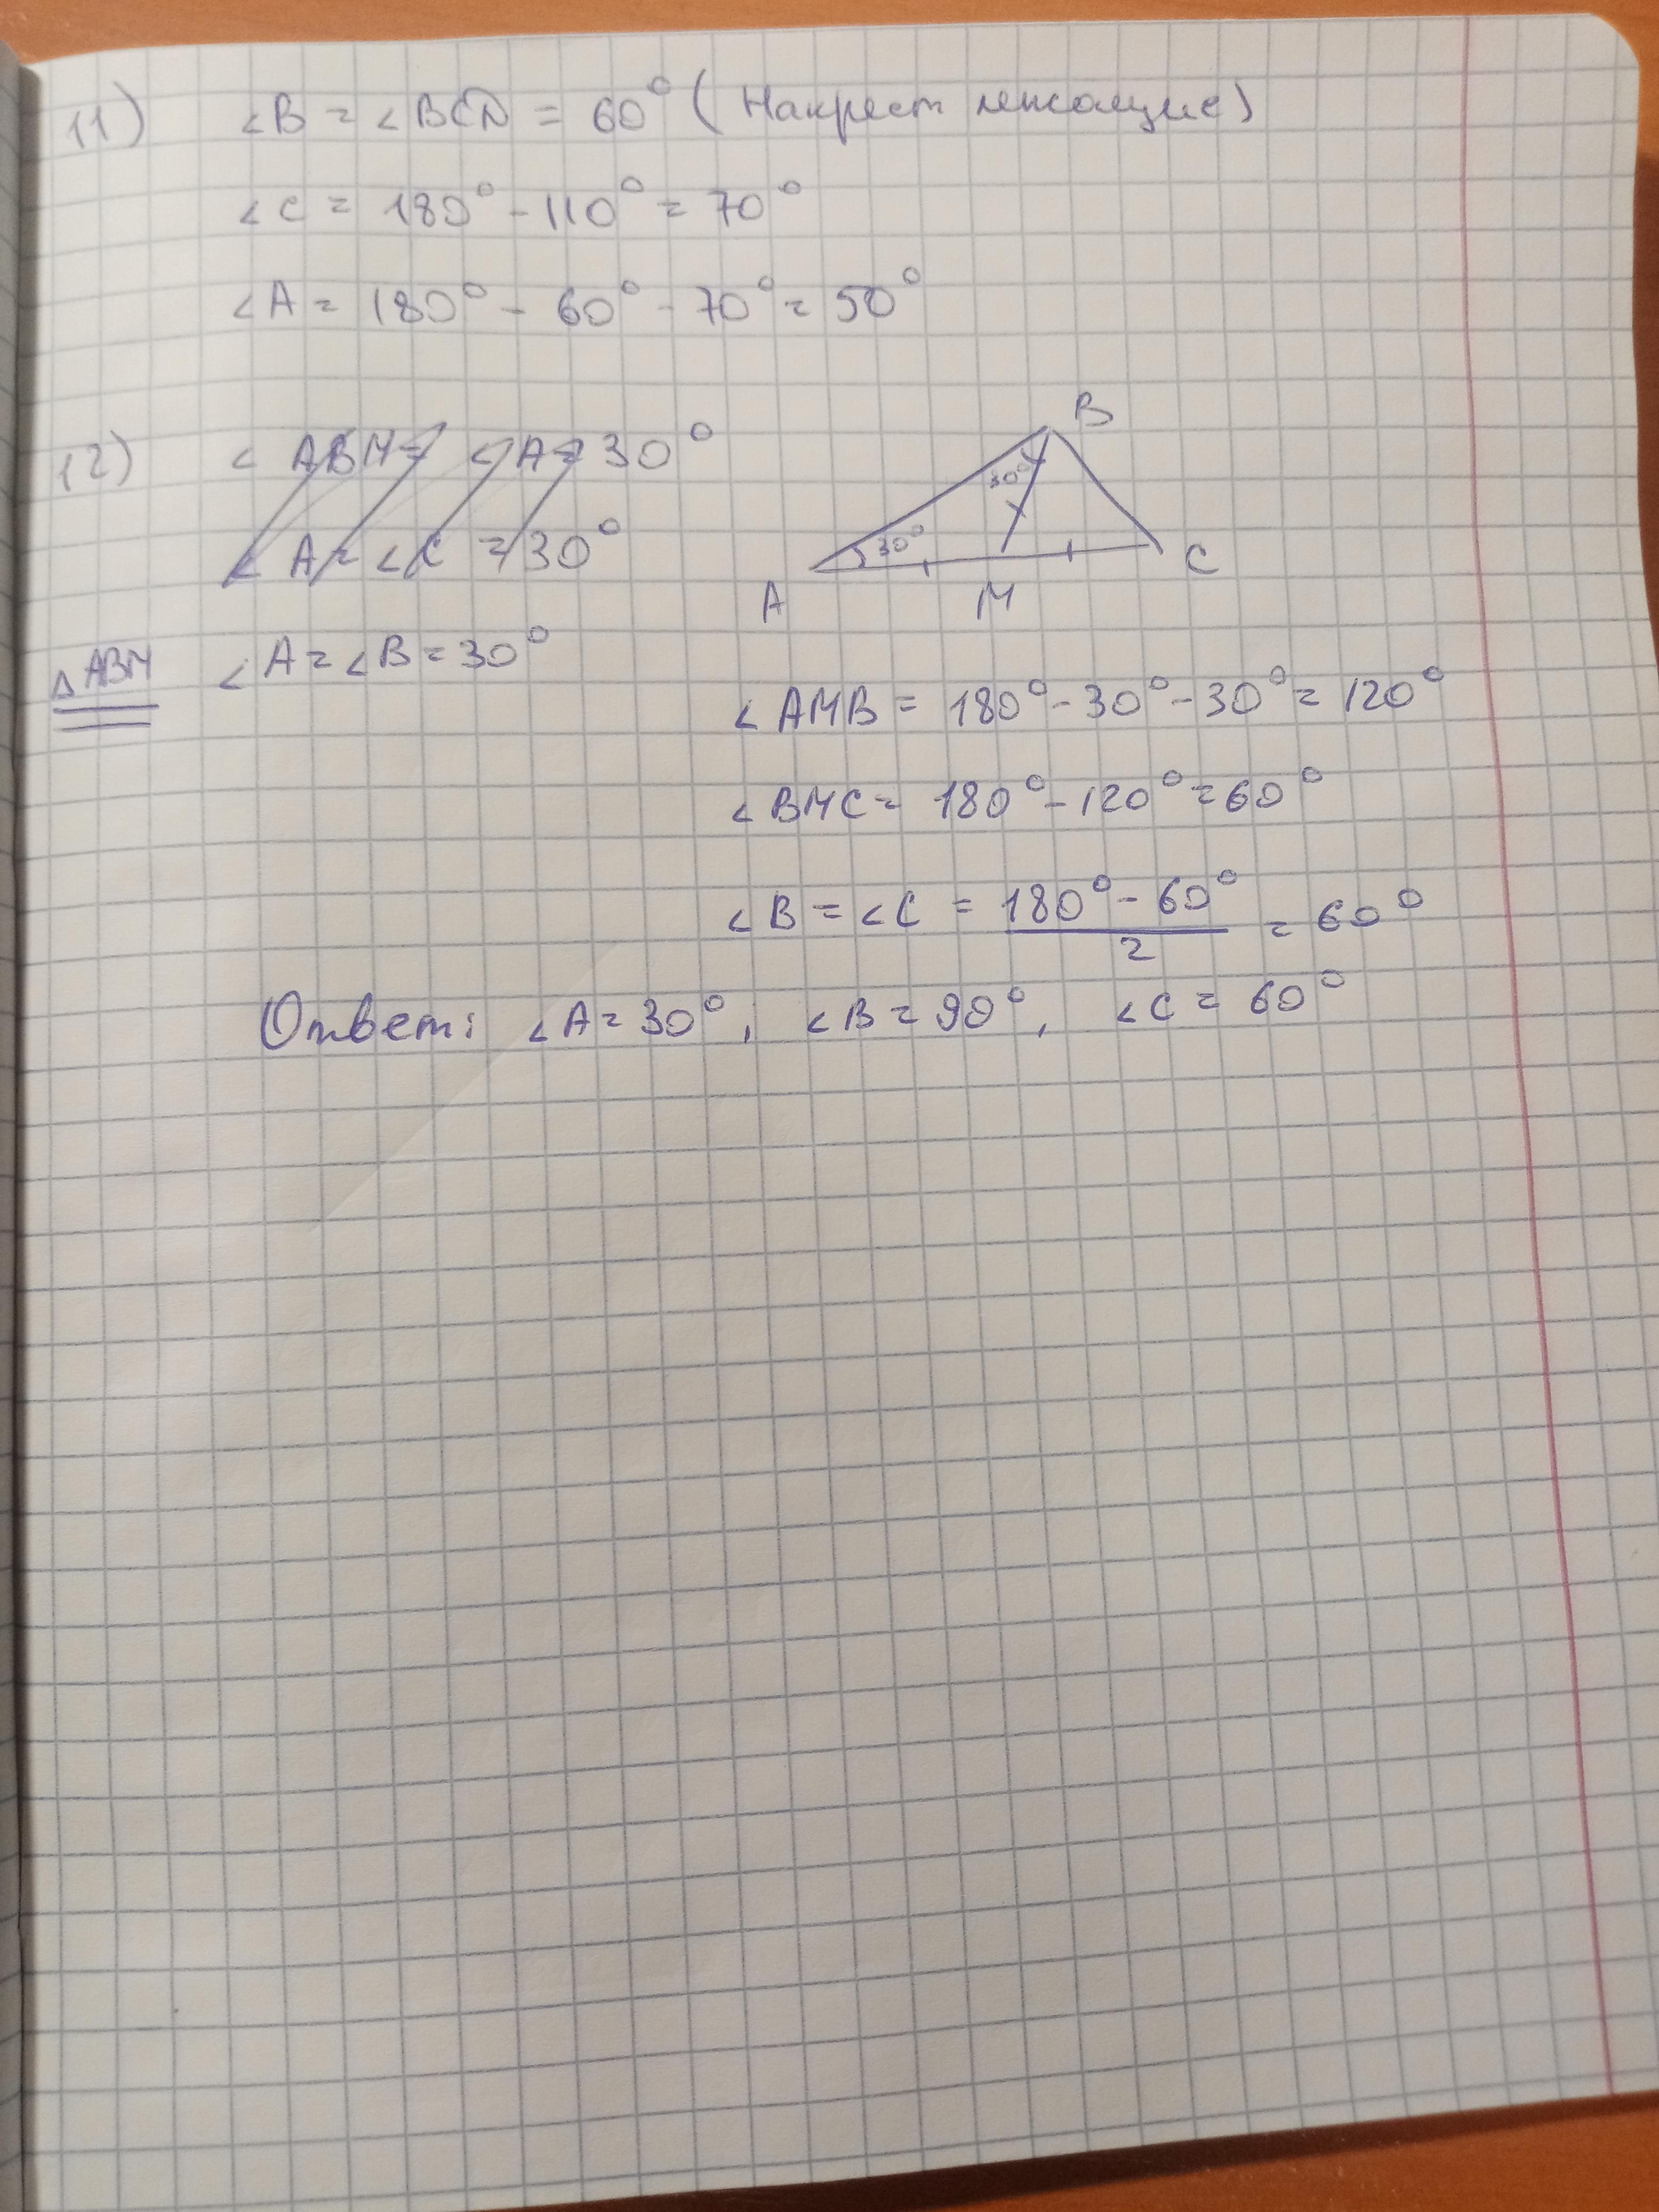 11) ∠B = ∠BCD = 60° (Накрест лежащие)
∠C = 180° - 110° = 70°
∠A = 180° - 60° - 70° = 50°
12) ∠ABM = ∠A = 30°
∠A = ∠C = 30°
B
30°
30°
A M C
△ABM ∠A = ∠B = 30°
∠AMB = 180° - 30° - 30° = 120°
∠BMC = 180° - 120° = 60°
∠B = ∠C = (180° - 60°)/2 = 60°
Ответ: ∠A = 30°, ∠B = 90°, ∠C = 60°